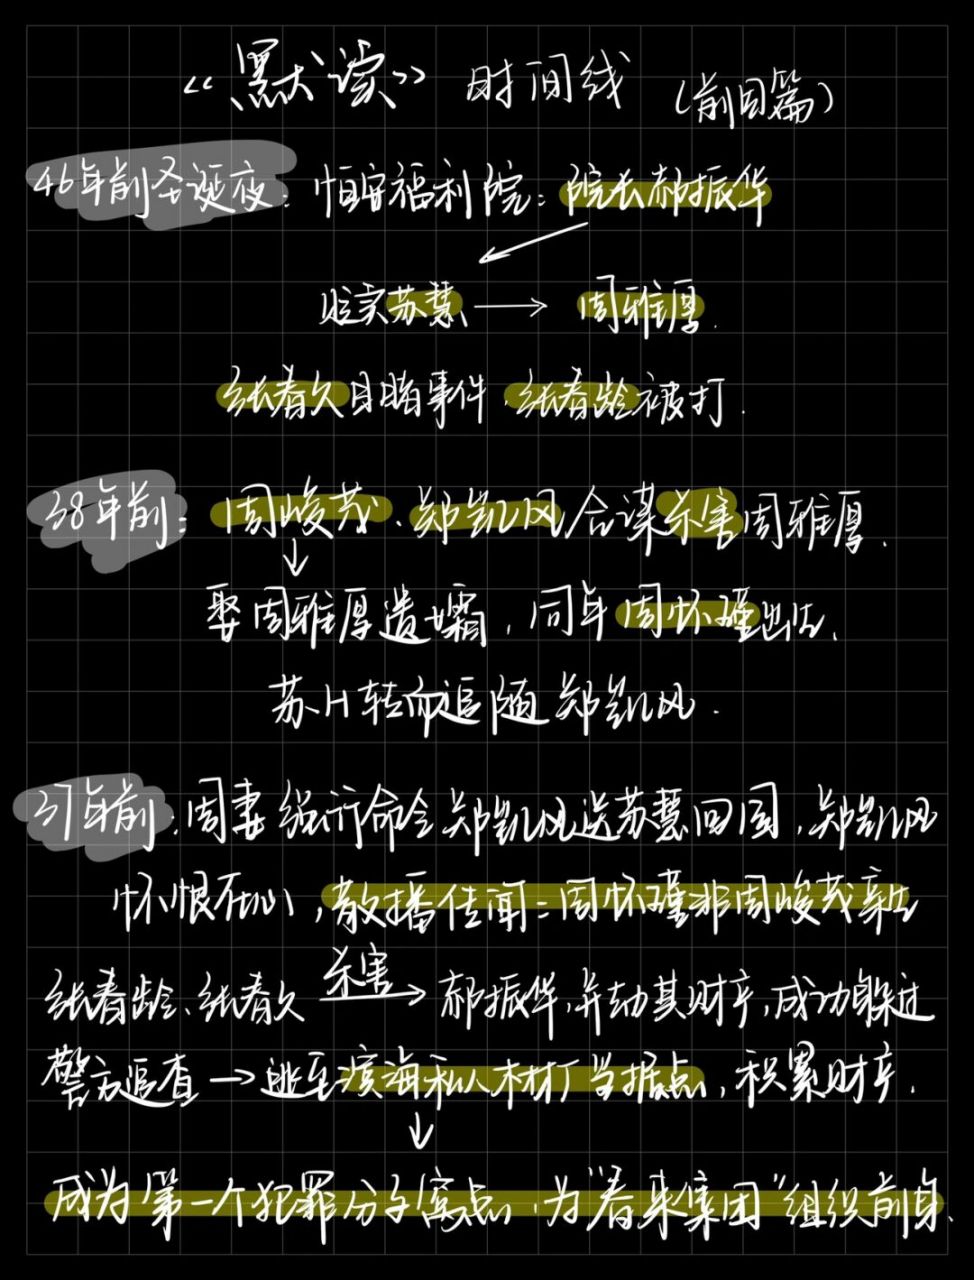 “默读” 时间线 (前因篇)
46年前圣诞夜: 恒安福利院: 院长郝振华
贩卖苏慧 → 周雅厚.
张春久目睹事件, 张春龄被打.
38年前: 周峻茂、郑凯风合谋杀害周雅厚.
↓
娶周雅厚遗孀, 同年周怀瑾出生.
苏H转而追随郑凯风.
37年前: 周妻强行命令郑凯风送苏慧回国, 郑凯风
怀恨在心, 散播传闻: 周怀瑾非周峻茂亲生
张春龄、张春久 杀害→ 郝振华, 并劫其财产, 成功躲过
警方追查 → 逃至滨海私人材厂当据点, 积累财产.
↓
成为第一个犯罪分子窝点, 为“春来集团”组织前身.